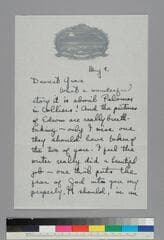 Aug 4.
Dearest Grace
What a wonderful
story it is about Palomar
in Colliers! And the pictures
of Edwin are really breath-
taking - only I miss one
they should have taken
the two of you. I feel the
writer really did a beautiful
job - one that puts the
fear of God into you very
properly. It should, in an